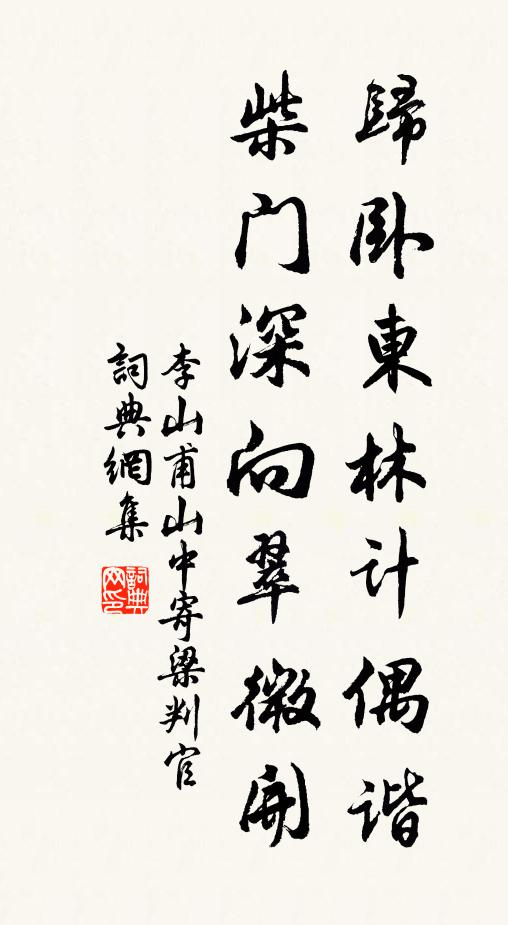 歸卧東林计偶谐
柴门深向翠微開
李山甫山中寄梁判官
詞典網集
詞典网印